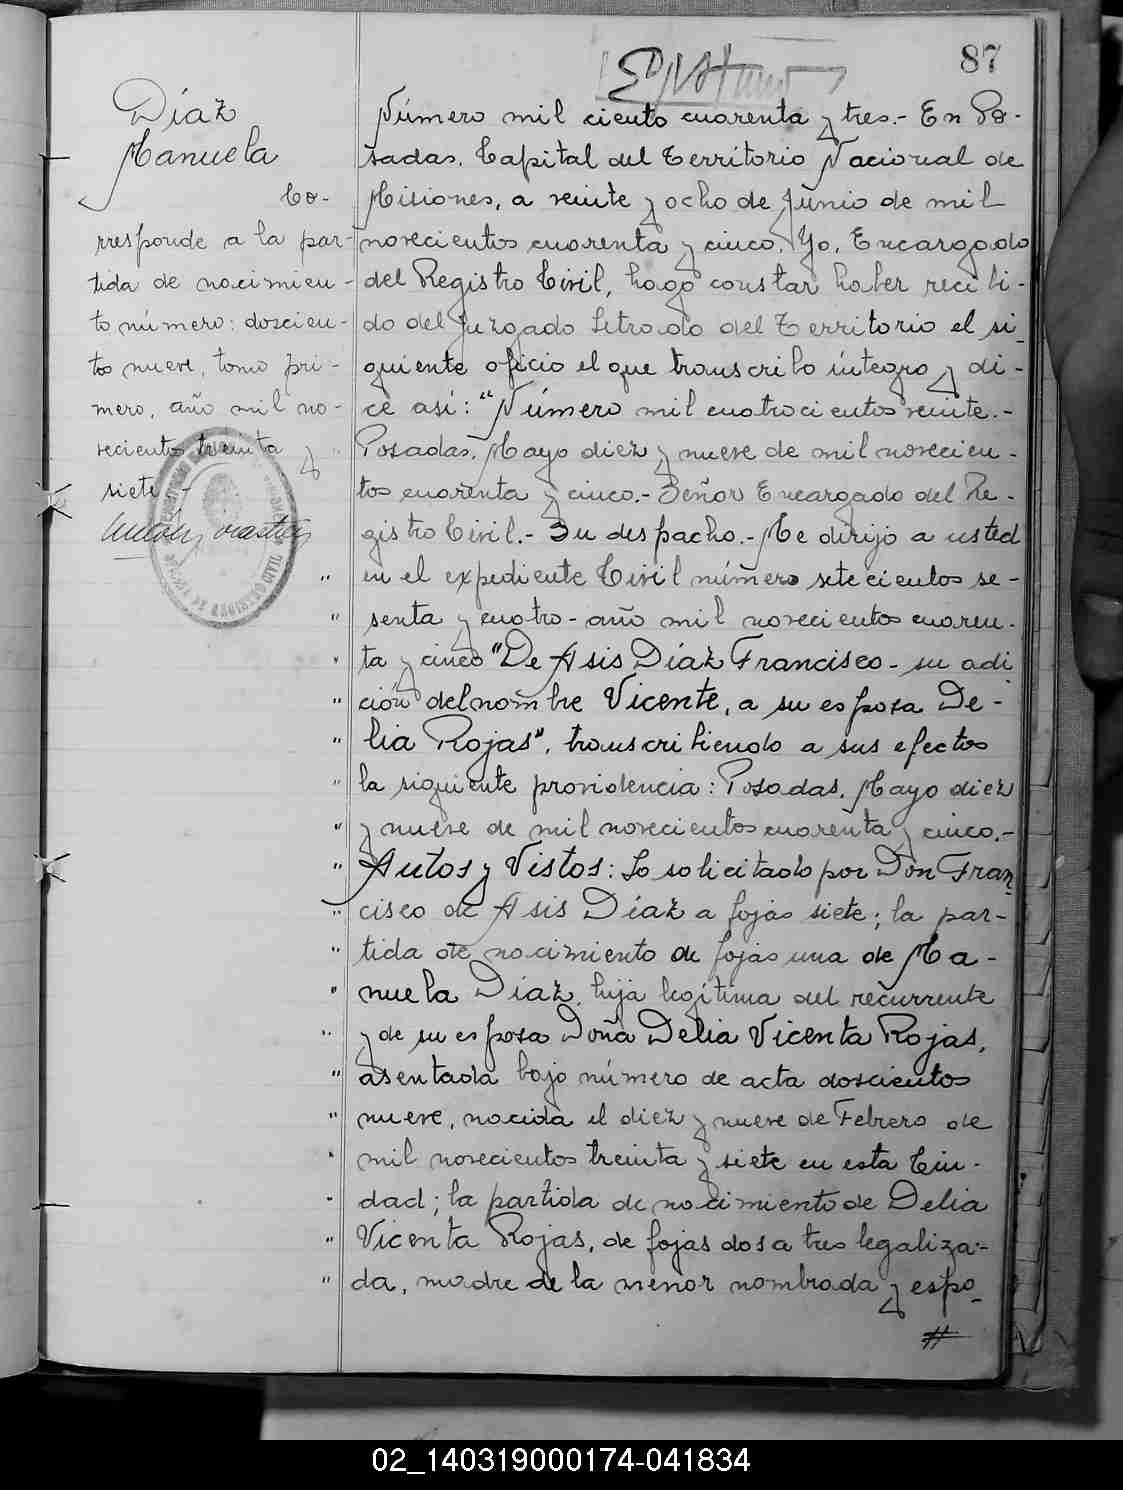 87
Díaz
Manuela
Co-
rresponde a la par-
tida de nacimien-
to número: doscien-
tos nueve, tomo pri-
mero, año mil no-
vecientos treinta y
siete.-
REGISTRO CIVIL
Número mil ciento cuarenta y tres.- En Po-
sadas, Capital del Territorio Nacional de
Misiones, a veinte y ocho de Junio de mil
novecientos cuarenta y cinco, Yo, Encargado
del Registro Civil, hago constar haber recibi-
do del Juzgado Letrado del Territorio el si-
guiente oficio el que transcribo íntegro y di-
ce así: "Número mil cuatrocientos veinte.-
Posadas, Mayo diez y nueve de mil novecien-
tos cuarenta y cinco.- Señor Encargado del Re-
gistro Civil.- Su despacho.- Me dirijo a usted
" en el expediente Civil número setecientos se-
" senta y cuatro - año mil novecientos cuaren-
" ta y cinco "De Asis Díaz Francisco - su adi
" ción del nombre Vicente, a su esposa De-
" lia Rojas", transcribiendo a sus efectos
" la siguiente providencia: Posadas, Mayo diez
" y nueve de mil novecientos cuarenta y cinco.-
" Autos y Vistos: Lo solicitado por Don Fran-
" cisco de Asis Díaz a fojas siete; la par-
" tida de nacimiento de fojas una de Ma-
" nuela Díaz, hija legítima del recurrente
" y de su esposa Doña Delia Vicenta Rojas,
" asentada bajo número de acta doscientos
" nueve, nacida el diez y nueve de Febrero de
" mil novecientos treinta y siete en esta Ciu-
" dad; la partida de nacimiento de Delia
" Vicenta Rojas, de fojas dos a tres legaliza-
" da, madre de la menor nombrada y espo-
#
02_140319000174-041834